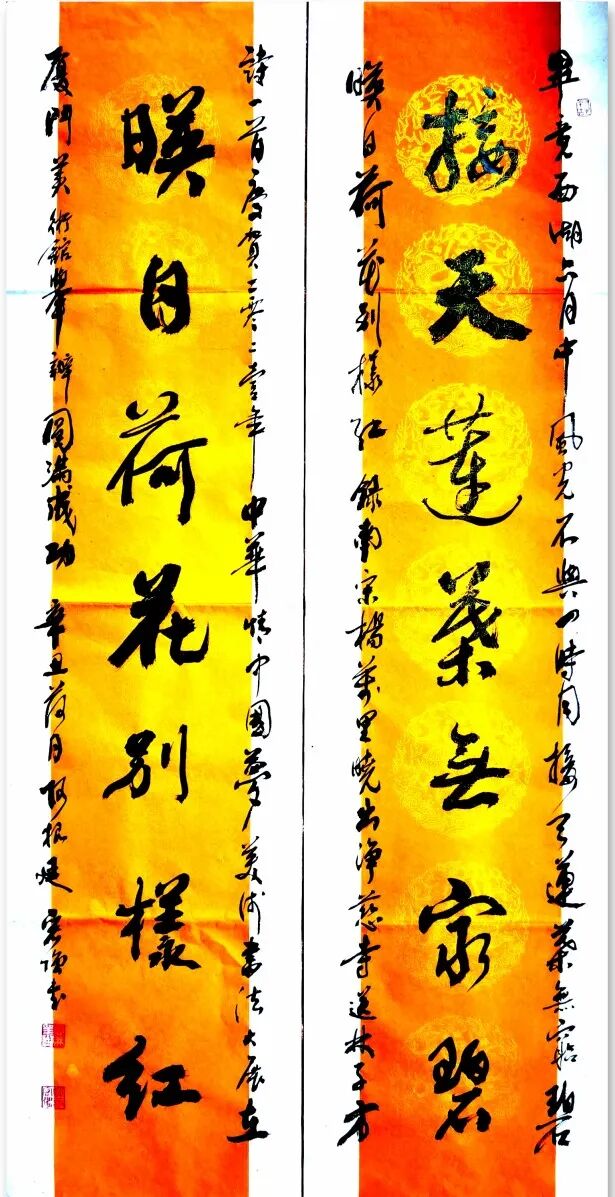 畢竟西湖六月中 風光不與四時同 接天蓮葉無窮碧
接天蓮葉無窮碧
暎日荷花別樣紅 錄南宋楊萬里曉出淨慈寺送林子方
詩一首慶賀二零二壹年 中華情中國夢美術書法大展在
暎日荷花別樣紅
廈門美術館舉辦圓滿成功 辛丑荷月阿根廷